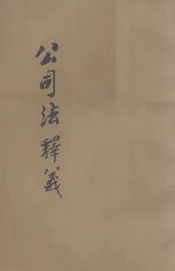 公司法釋義